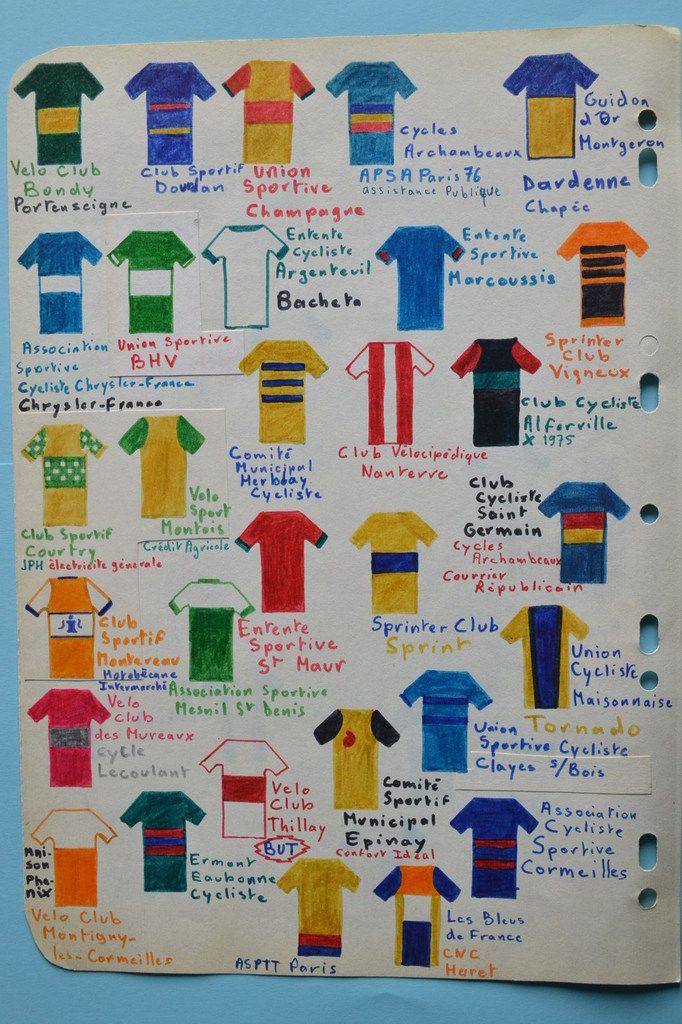 Velo Club
Bondy
Portenseigne
Club Sportif
Dourdan
Union
Sportive
Champagne
Cycles
Archambeaux
APSA Paris 76
assistance Publique
Guidon
d'Or
Montgeron
Dardenne
Chapée
Association
Sportive
Cycliste Chrysler-France
Chrysler-France
Union Sportive
BHV
Entente
Cycliste
Argenteuil
Bacheta
Entente
Sportive
Marcoussis
Sprinter
Club
Vigneux
Comité
Municipal
Herblay
Cycliste
Club Vélocipédique
Nanterre
Club Cycliste
Alforville
X 1975
Club Sportif
Courtry
JPH électricité générale
Velo
Sport
Montois
Crédit Agricole
Entente
Sportive
St Maur
Sprinter Club
Sprint
Club
Cycliste
Saint
Germain
Cycles
Archambeaux
Courrier
Républicain
Club
Sportif
Montereau
Motobécane
Intermarché
Association Sportive
Mesnil St Denis
Union
Cycliste
Maisonnaise
Tornado
Velo
Club
des Mureaux
Cycle
Lecoulant
Velo
Club
Thillay
BUT
Comité
Sportif
Municipal
Epinay
Confort Idéal
Union
Sportive Cycliste
Clayes s/Bois
Maison
Phenix
Velo Club
Montigny-
les-Cormeilles
Ermont
Eaubonne
Cycliste
ASPTT Paris
Les Bleus
de France
CNC
Haret
Association
Cycliste
Sportive
Cormeilles